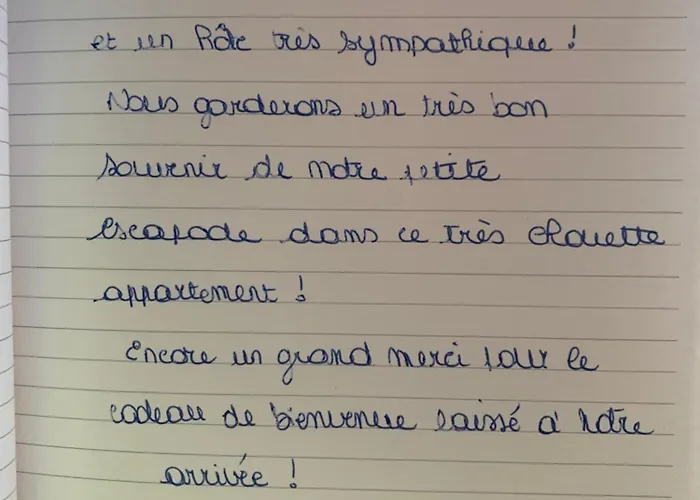 et un hôte très sympathique !
Nous garderons un très bon
souvenir de notre petite
escapade dans ce très chouette
appartement !
Encore un grand merci pour le
cadeau de bienvenue laissé à notre
arrivée !